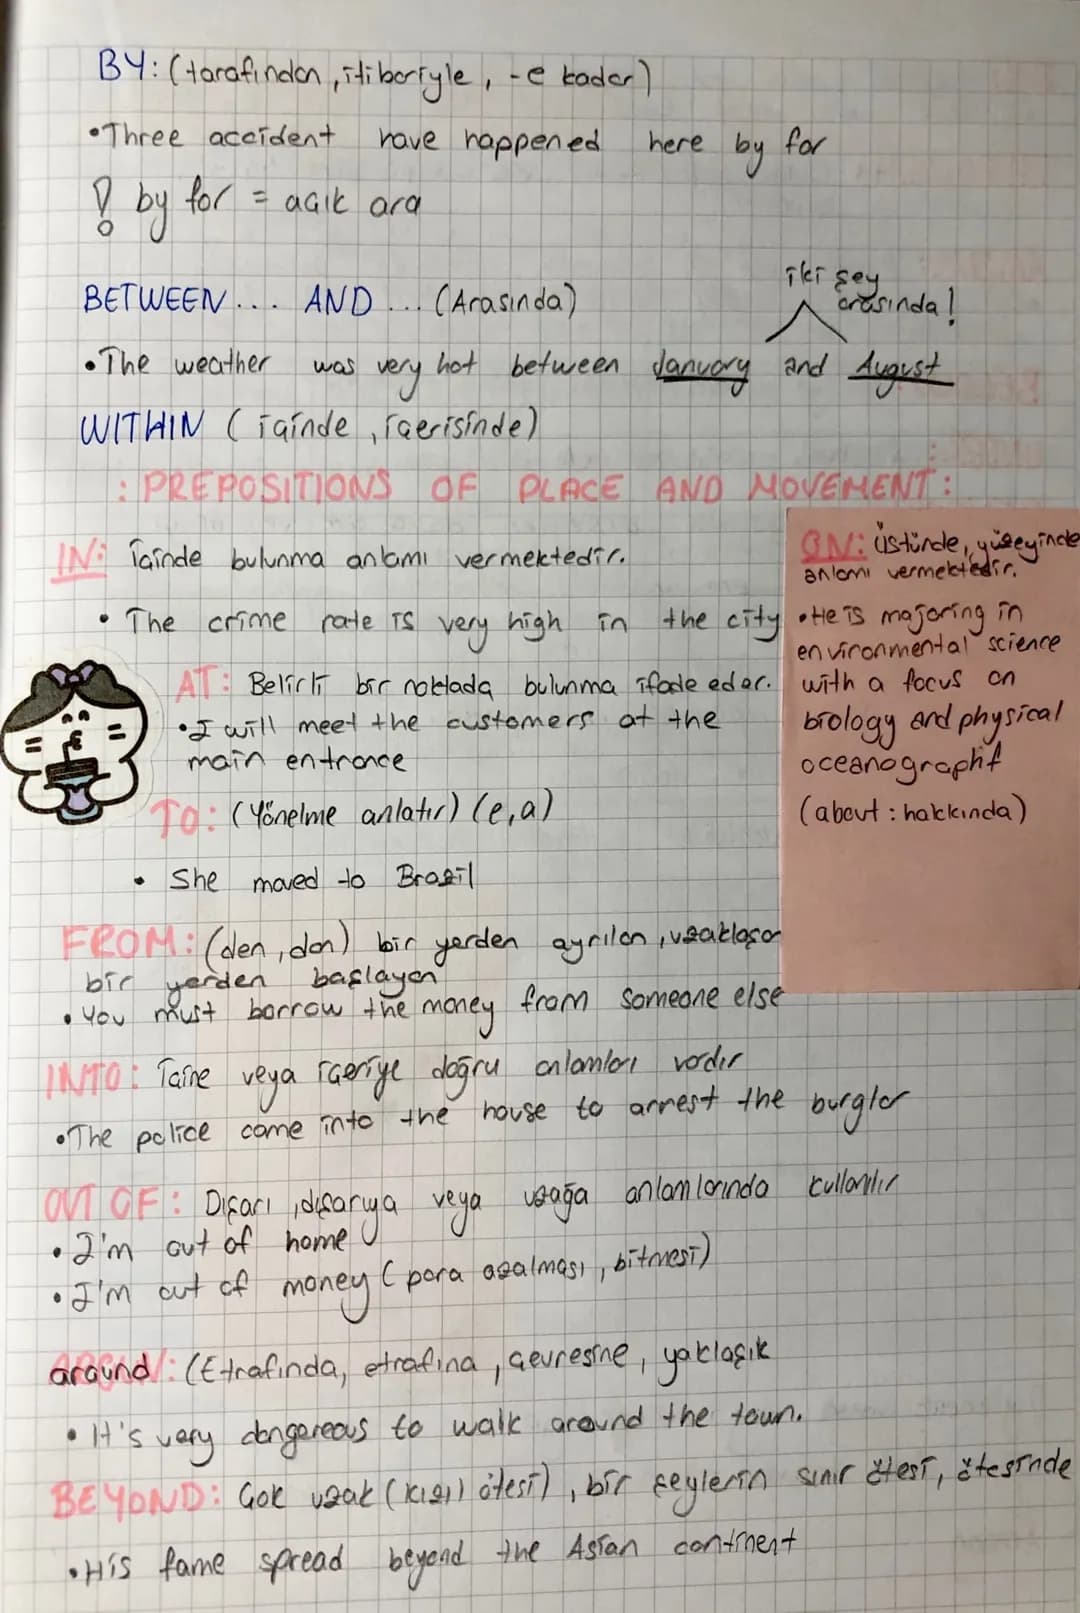 BY: (tarafından, itibariyle, -e kadar)
•Three accident have happened here by far
! by far = açık ara
BETWEEN... AND... (Arasında)
iki şey arasında!
•The weather was very hot between January and August
WITHIN (içinde, içerisinde)
: PREPOSITIONS OF PLACE AND MOVEMENT:
IN: İçinde bulunma anlamı vermektedir.
• The crime rate is very high in the city
AT: Belirli bir noktada bulunma ifade eder.
•I will meet the customers at the
main entrance
TO: (Yönelme anlatır) (e,a)
• She moved to Brazil
FROM: (den, dan) bir yerden ayrılan, uzaklaşan
bir yerden başlayan
• You must borrow the money from someone else
INTO: İçine veya içeriye doğru anlamları vardır
•The police come into the house to arrest the burglar
OUT OF: Dışarı, dışarıya veya uzağa anlamlarında kullanılır
• I'm out of home
• I'm out of money (para azalması, bitmesi)
around: (Etrafında, etrafına, çevresine, yaklaşık
• It's very dangereous to walk around the town.
BEYOND: Çok uzak (kızıl ötesi), bir şeylerin sınır ötesi, ötesinde
•His fame spread beyond the Asian continent
ON: üstünde, yüzeyinde
anlamı vermektedir.
•He is majoring in
environmental science
with a focus on
biology and physical
oceanographf
(about: hakkında)